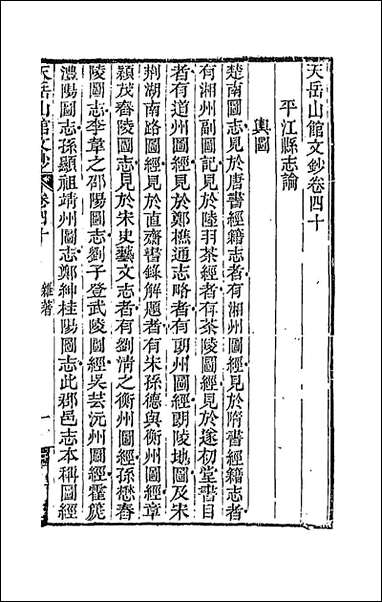 天岳山館文鈔卷四十
平江縣志論
輿圖
楚南圖志見於唐書經籍志者有湘州圖經見於隋書經籍志者
有湘州副圖記見於陸羽茶經者有茶陵圖經見於遂初堂書目
者有道州圖經見於鄭樵通志略者有朗州圖經朗陵地圖及宋
荆湖南路圖經見於直齋書錄解題者有宋孫德輿衡州圖經章
穎茂舂陵圖志見於宋史藝文志者有劉清之衡州圖經孫懋舂
陵圖志李韋之邵陽圖志劉子登武陵圖經吳芸沅州圖經霍箎
澧陽圖志孫顯祖靖州圖志鄭紳桂陽圖志此郡邑志本稱圖經
天岳山館文鈔 卷四十 雜著 一